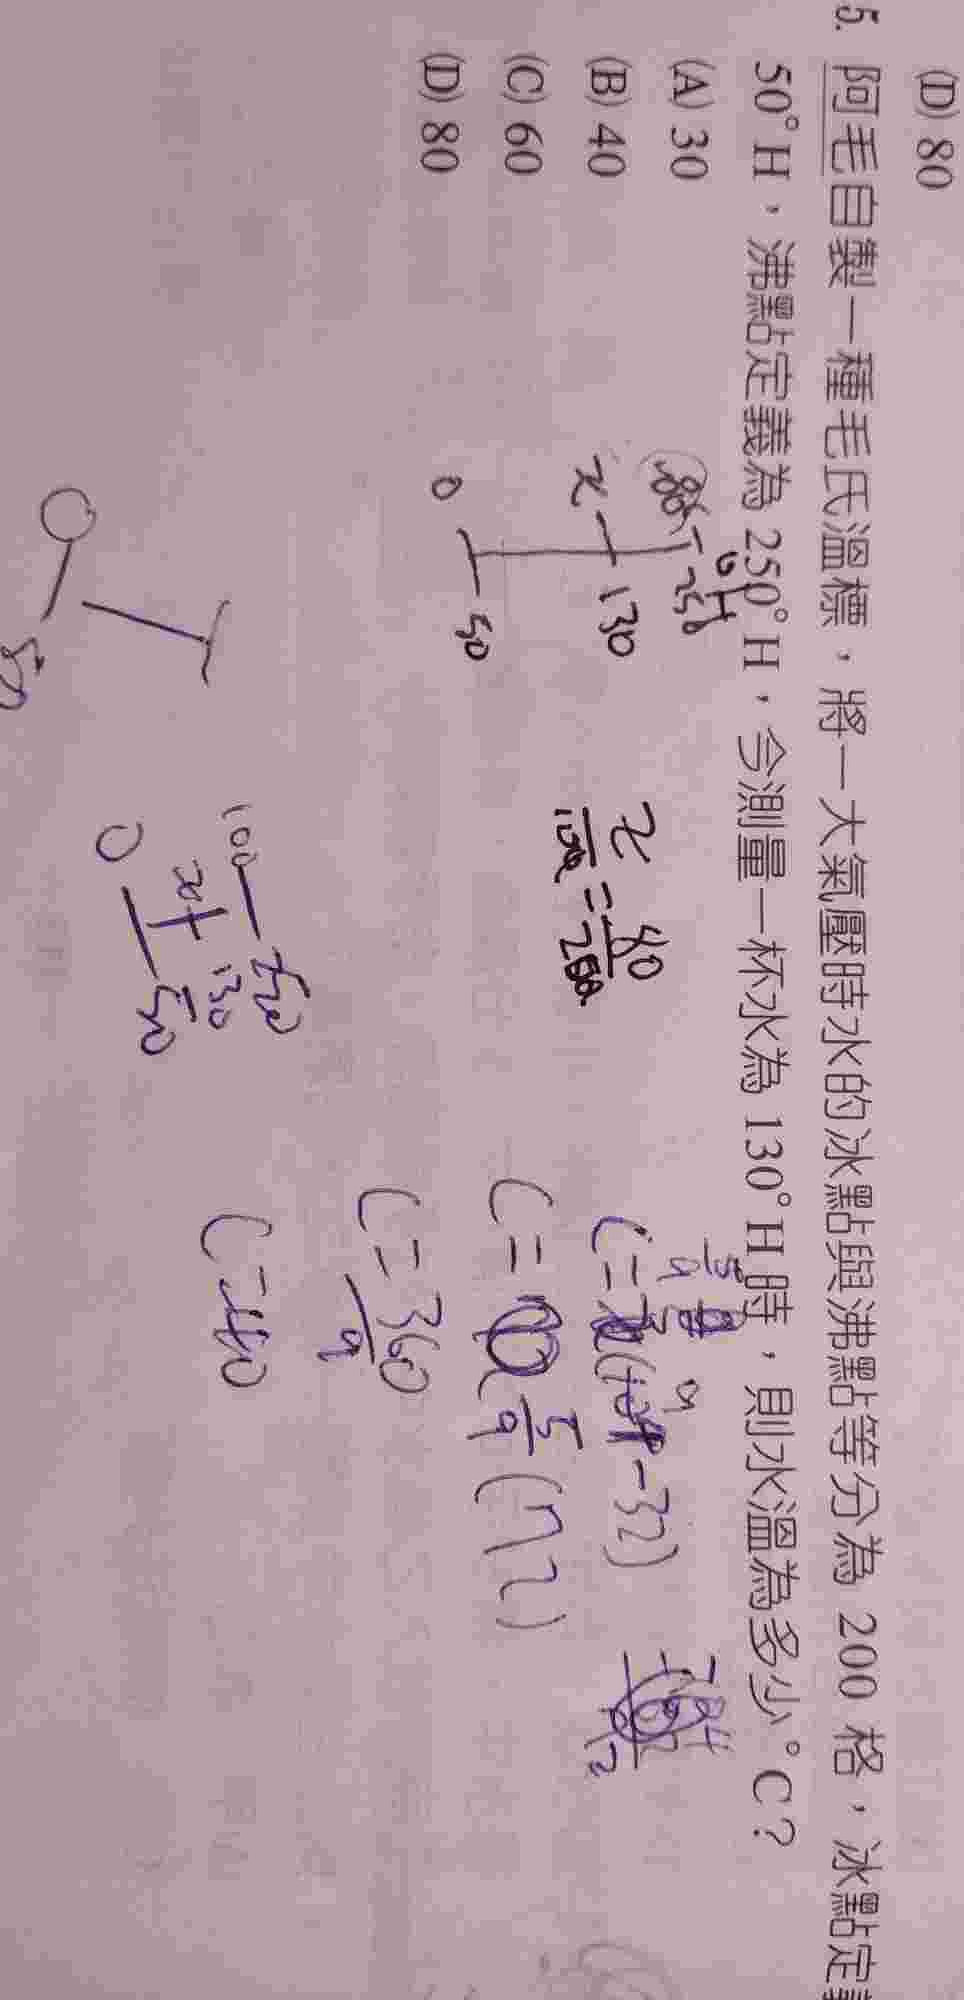 (D) 80
5. 阿毛自製一種毛氏溫標，將一大氣壓時水的冰點與沸點等分為 200 格，冰點定
50°H，沸點定義為 250°H，今測量一杯水為 130°H時，則水溫為多少°C？
(A) 30
(B) 40
(C) 60
(D) 80
250
x 130
0 50
x/100 = 80/200
5/9
C = (104 - 32)
C = 5/9 (72)
C = 360/9
C = 40
100 250
x 130
0 50
50